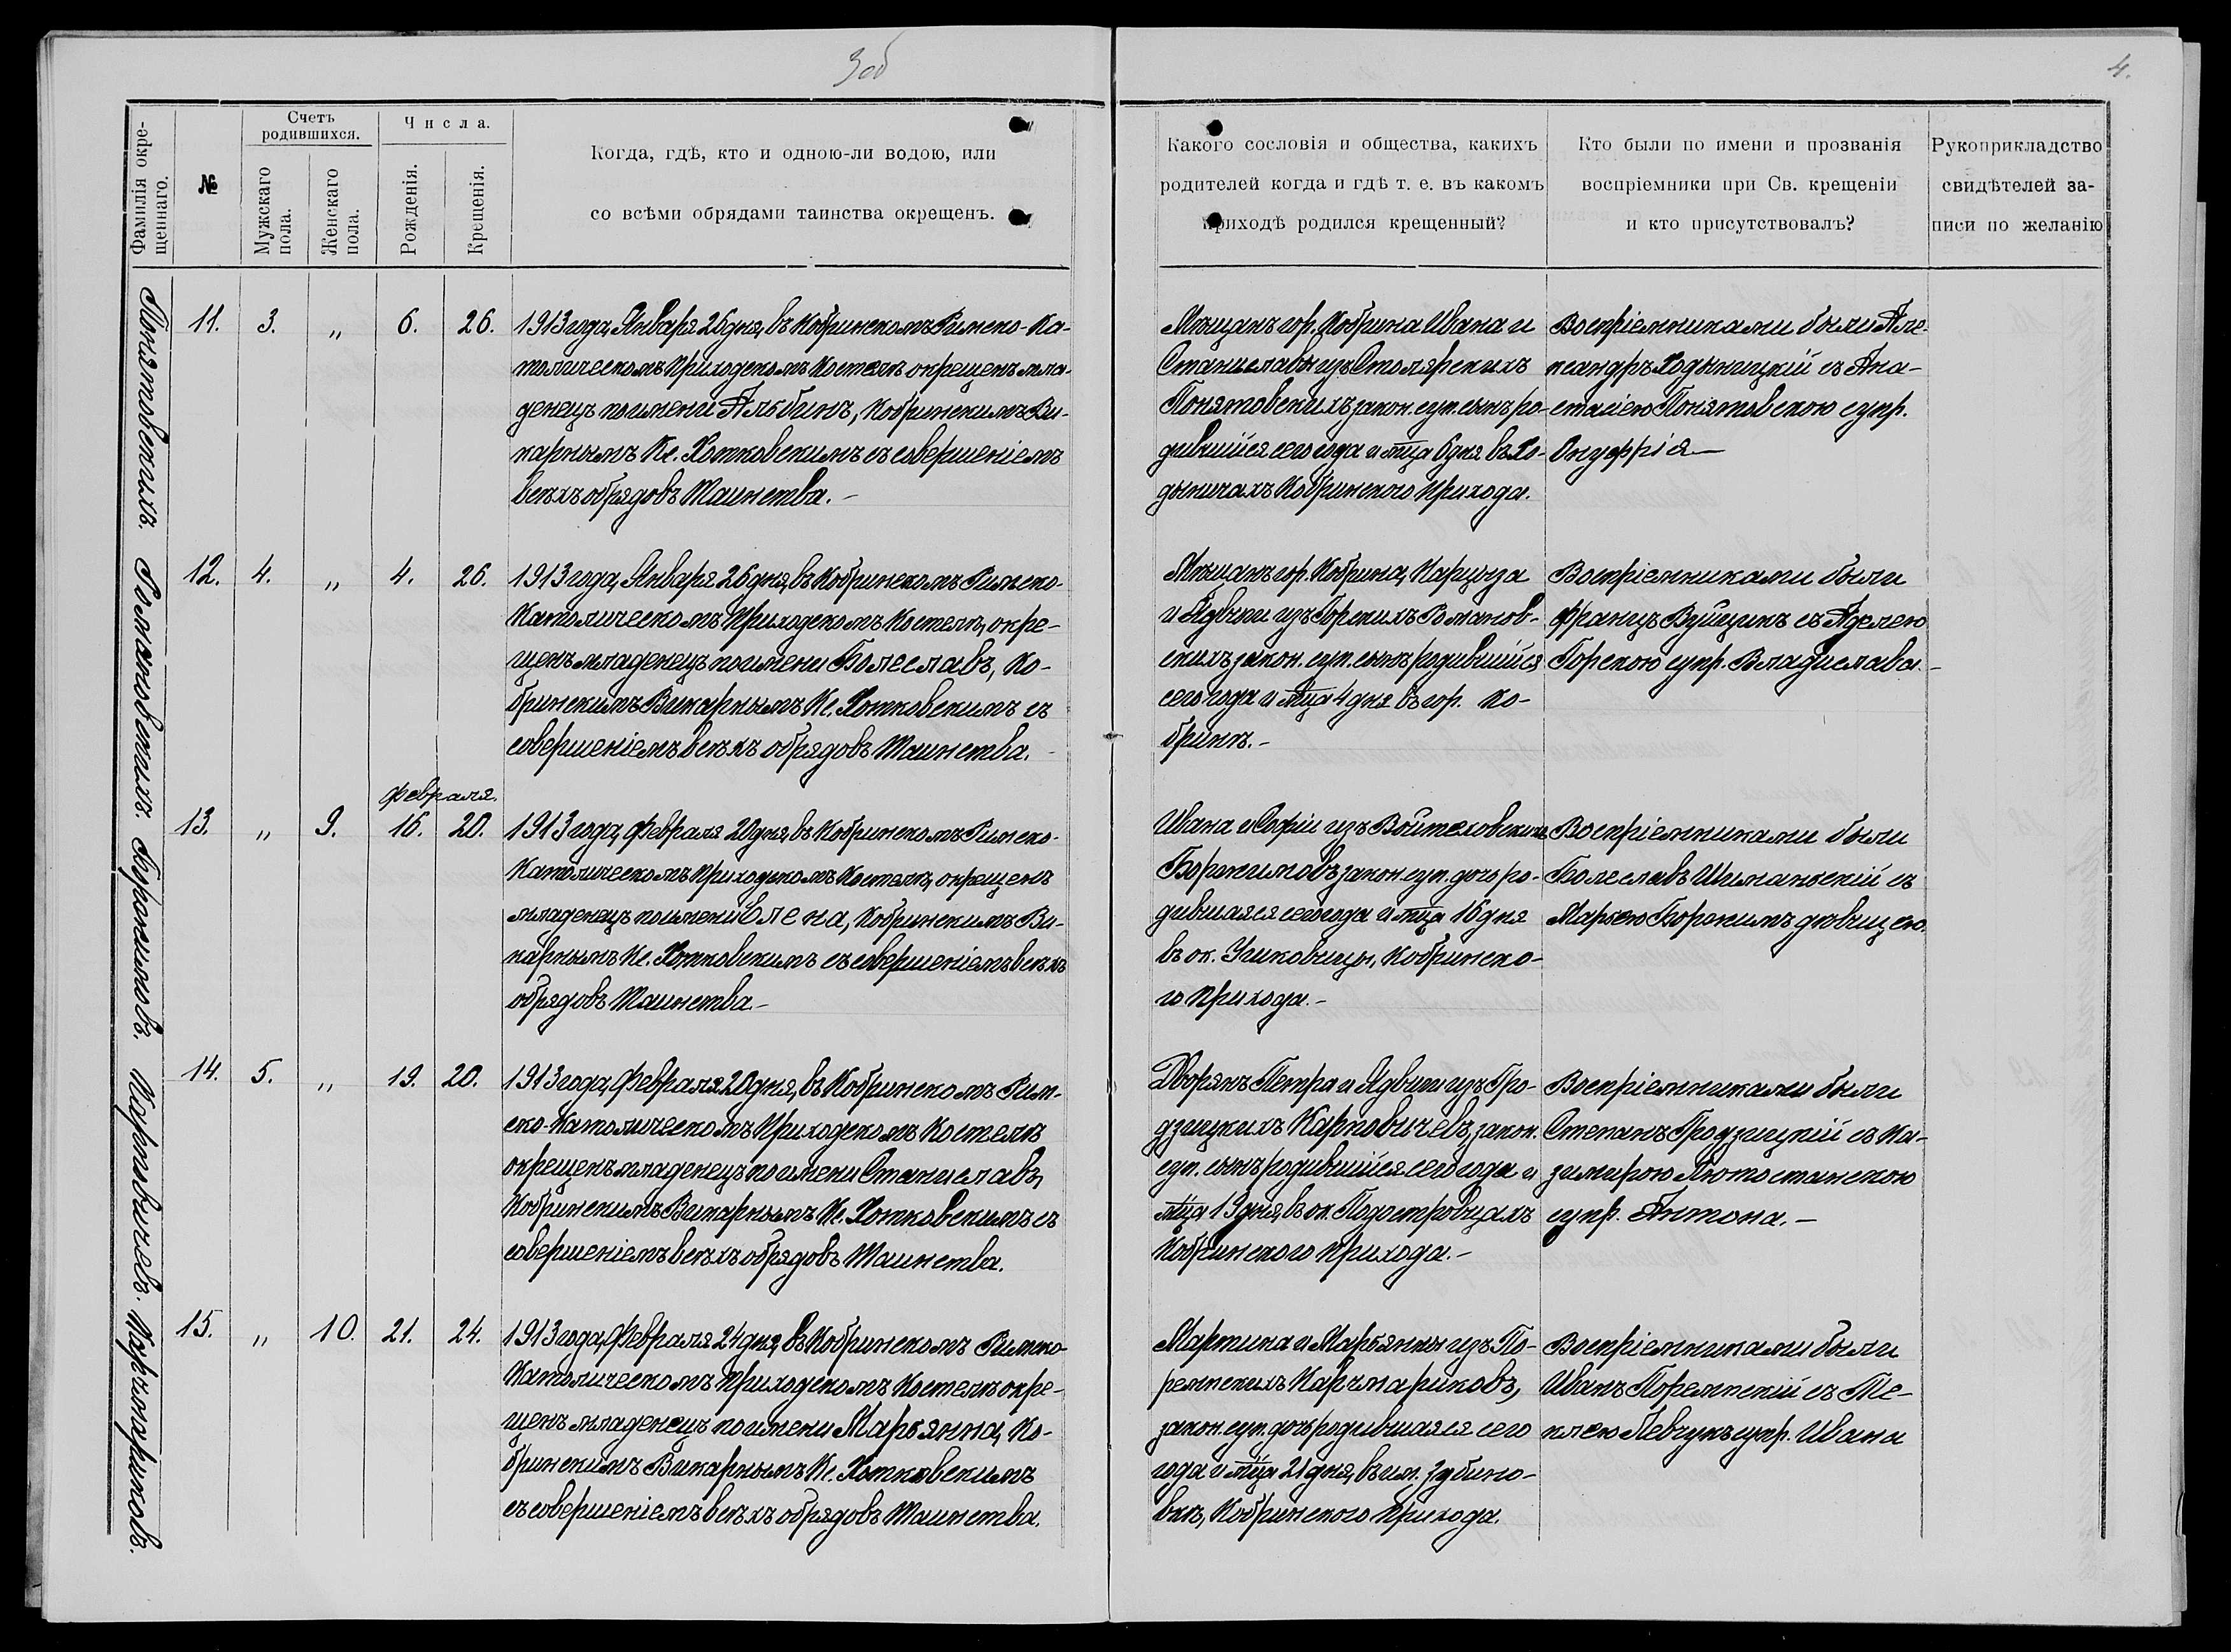 3об
4.
Фамилія окре-
щеннаго.
№
Счетъ
родившихся.
Мужскаго
пола.
Женскаго
пола.
Числа.
Рожденія.
Крещенія.
Когда, гдѣ, кто и одною-ли водою, или
со всѣми обрядами таинства окрещенъ.
Какого сословія и общества, какихъ
родителей когда и гдѣ т. е. въ какомъ
приходѣ родился крещенный?
Кто были по имени и прозванія
воспріемники при Св. крещеніи
и кто присутствовалъ?
Рукоприкладство
свидѣтелей за-
писи по желанію
Понятовскихъ.
11. 3. „ 6. 26.
1913 года, Января 26 дня, въ Кобринскомъ Римско-Ка-
толическомъ Приходскомъ Костелѣ окрещенъ мла-
денецъ по имени Альбинъ, Кобринскимъ Ви-
карнымъ Кс. Хотковскимъ съ совершеніемъ
всѣхъ обрядовъ Таинства. -
Мѣщанъ гор. Кобрина Ивана и
Станиславы изъ Столярскихъ
Понятовскихъ закон. суп. сынъ ро-
дившійся сего года и мѣца 6 дня въ Хо-
дыничахъ Кобринского Прихода.
Воспріемниками были Але-
ксандръ Ходыницкій съ Ана-
стасіею Понятовскою супр.
Онуффрія —
Романовскихъ.
12. 4. „ 4. 26.
1913 года, Января 26 дня, въ Кобринскомъ Римско-
Католическомъ Приходскомъ Костелѣ, окре-
щенъ младенецъ по имени Болеславъ, Ко-
бринскимъ Викарнымъ Кс. Хотковскимъ съ
совершеніемъ всѣхъ обрядовъ Таинства. -
Мѣщанъ гор. Кобрина, Нарциза
и Ядвиги изъ Горскихъ Романов-
скихъ закон. суп. сынъ родившійся
сего года и мѣца 4 дня въ гор. Ко-
бринѣ. -
Воспріемниками были
Францъ Вуйцикъ съ Аделею
Горскою супр. Владислава. -
Боржимовъ.
Февраля.
13. „ 9. 16. 20.
1913 года, Февраля 20 дня, въ Кобринскомъ Римско-
Католическомъ Приходскомъ Костелѣ, окрещенъ
младенецъ по имени Елена, Кобринскимъ Ви-
карнымъ Кс. Хотковскимъ съ совершеніемъ всѣхъ
обрядовъ Таинства -
Ивана и Софіи изъ Войтеховскихъ
Боржимовъ закон. суп. дочь ро-
дившаяся сего года и мѣца 16 дня
въ ок. Кобринско-
го Прихода. -
Воспріемниками были
Болеславъ Шиманскій съ
Марьею Боржимъ дѣвицею.
Карповичевъ.
14. 5. „ 19. 20.
1913 года, Февраля 20 дня, въ Кобринскомъ Рим-
ско-Католическомъ Приходскомъ Костелѣ
окрещенъ младенецъ по имени Станиславъ,
Кобринскимъ Викарнымъ Кс. Хотковскимъ съ
совершеніемъ всѣхъ обрядовъ Таинства.
Дворянъ Петра и Ядвиги изъ Гро-
дзицкихъ Карповичевъ, закон.
суп. сынъ родившійся сего года и
мѣца 19 дня, въ ок. Подостровцахъ
Кобринского Прихода. -
Воспріемниками были
Степанъ Гродзицкій съ Ка-
зимирою Лютостанскою
супр. Антона. -
Карчмариковъ.
15. „ 10. 21. 24.
1913 года, Февраля 24 дня, въ Кобринскомъ Римско-
Католическомъ Приходскомъ Костелѣ окре-
щенъ младенецъ по имени Марьянна, Ко-
бринскимъ Викарнымъ Кс. Хотковскимъ
съ совершеніемъ всѣхъ обрядовъ Таинства.
Мартина и Марьянны изъ По-
ремпскихъ Карчмариковъ,
закон. суп. дочь родившаяся сего
года и мѣца 21 дня, въ им. Зубино-
вкѣ, Кобринского Прихода.
Воспріемниками были
Иванъ Поремпскій съ Те-
клею Левчукъ супр. Ивана